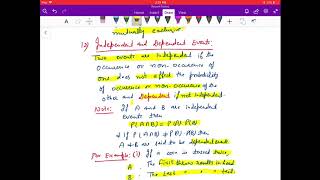 mutually exclusive
(3) Independent and Dependent Events:
Two events are independent if the
occurence or non-occurence of
one does not affect the probability
of occurence or non-occurence of the
other and Dependent if not independent.
Note: If A and B are independent
events then
P(A∩B) = P(A) P(B)
& if P(A∩B) ≠ P(A) P(B) then
A & B are said to be dependent events.
For Example: (1) If a coin is tossed twice,
A : The first throw results in head
B : The last " " " "